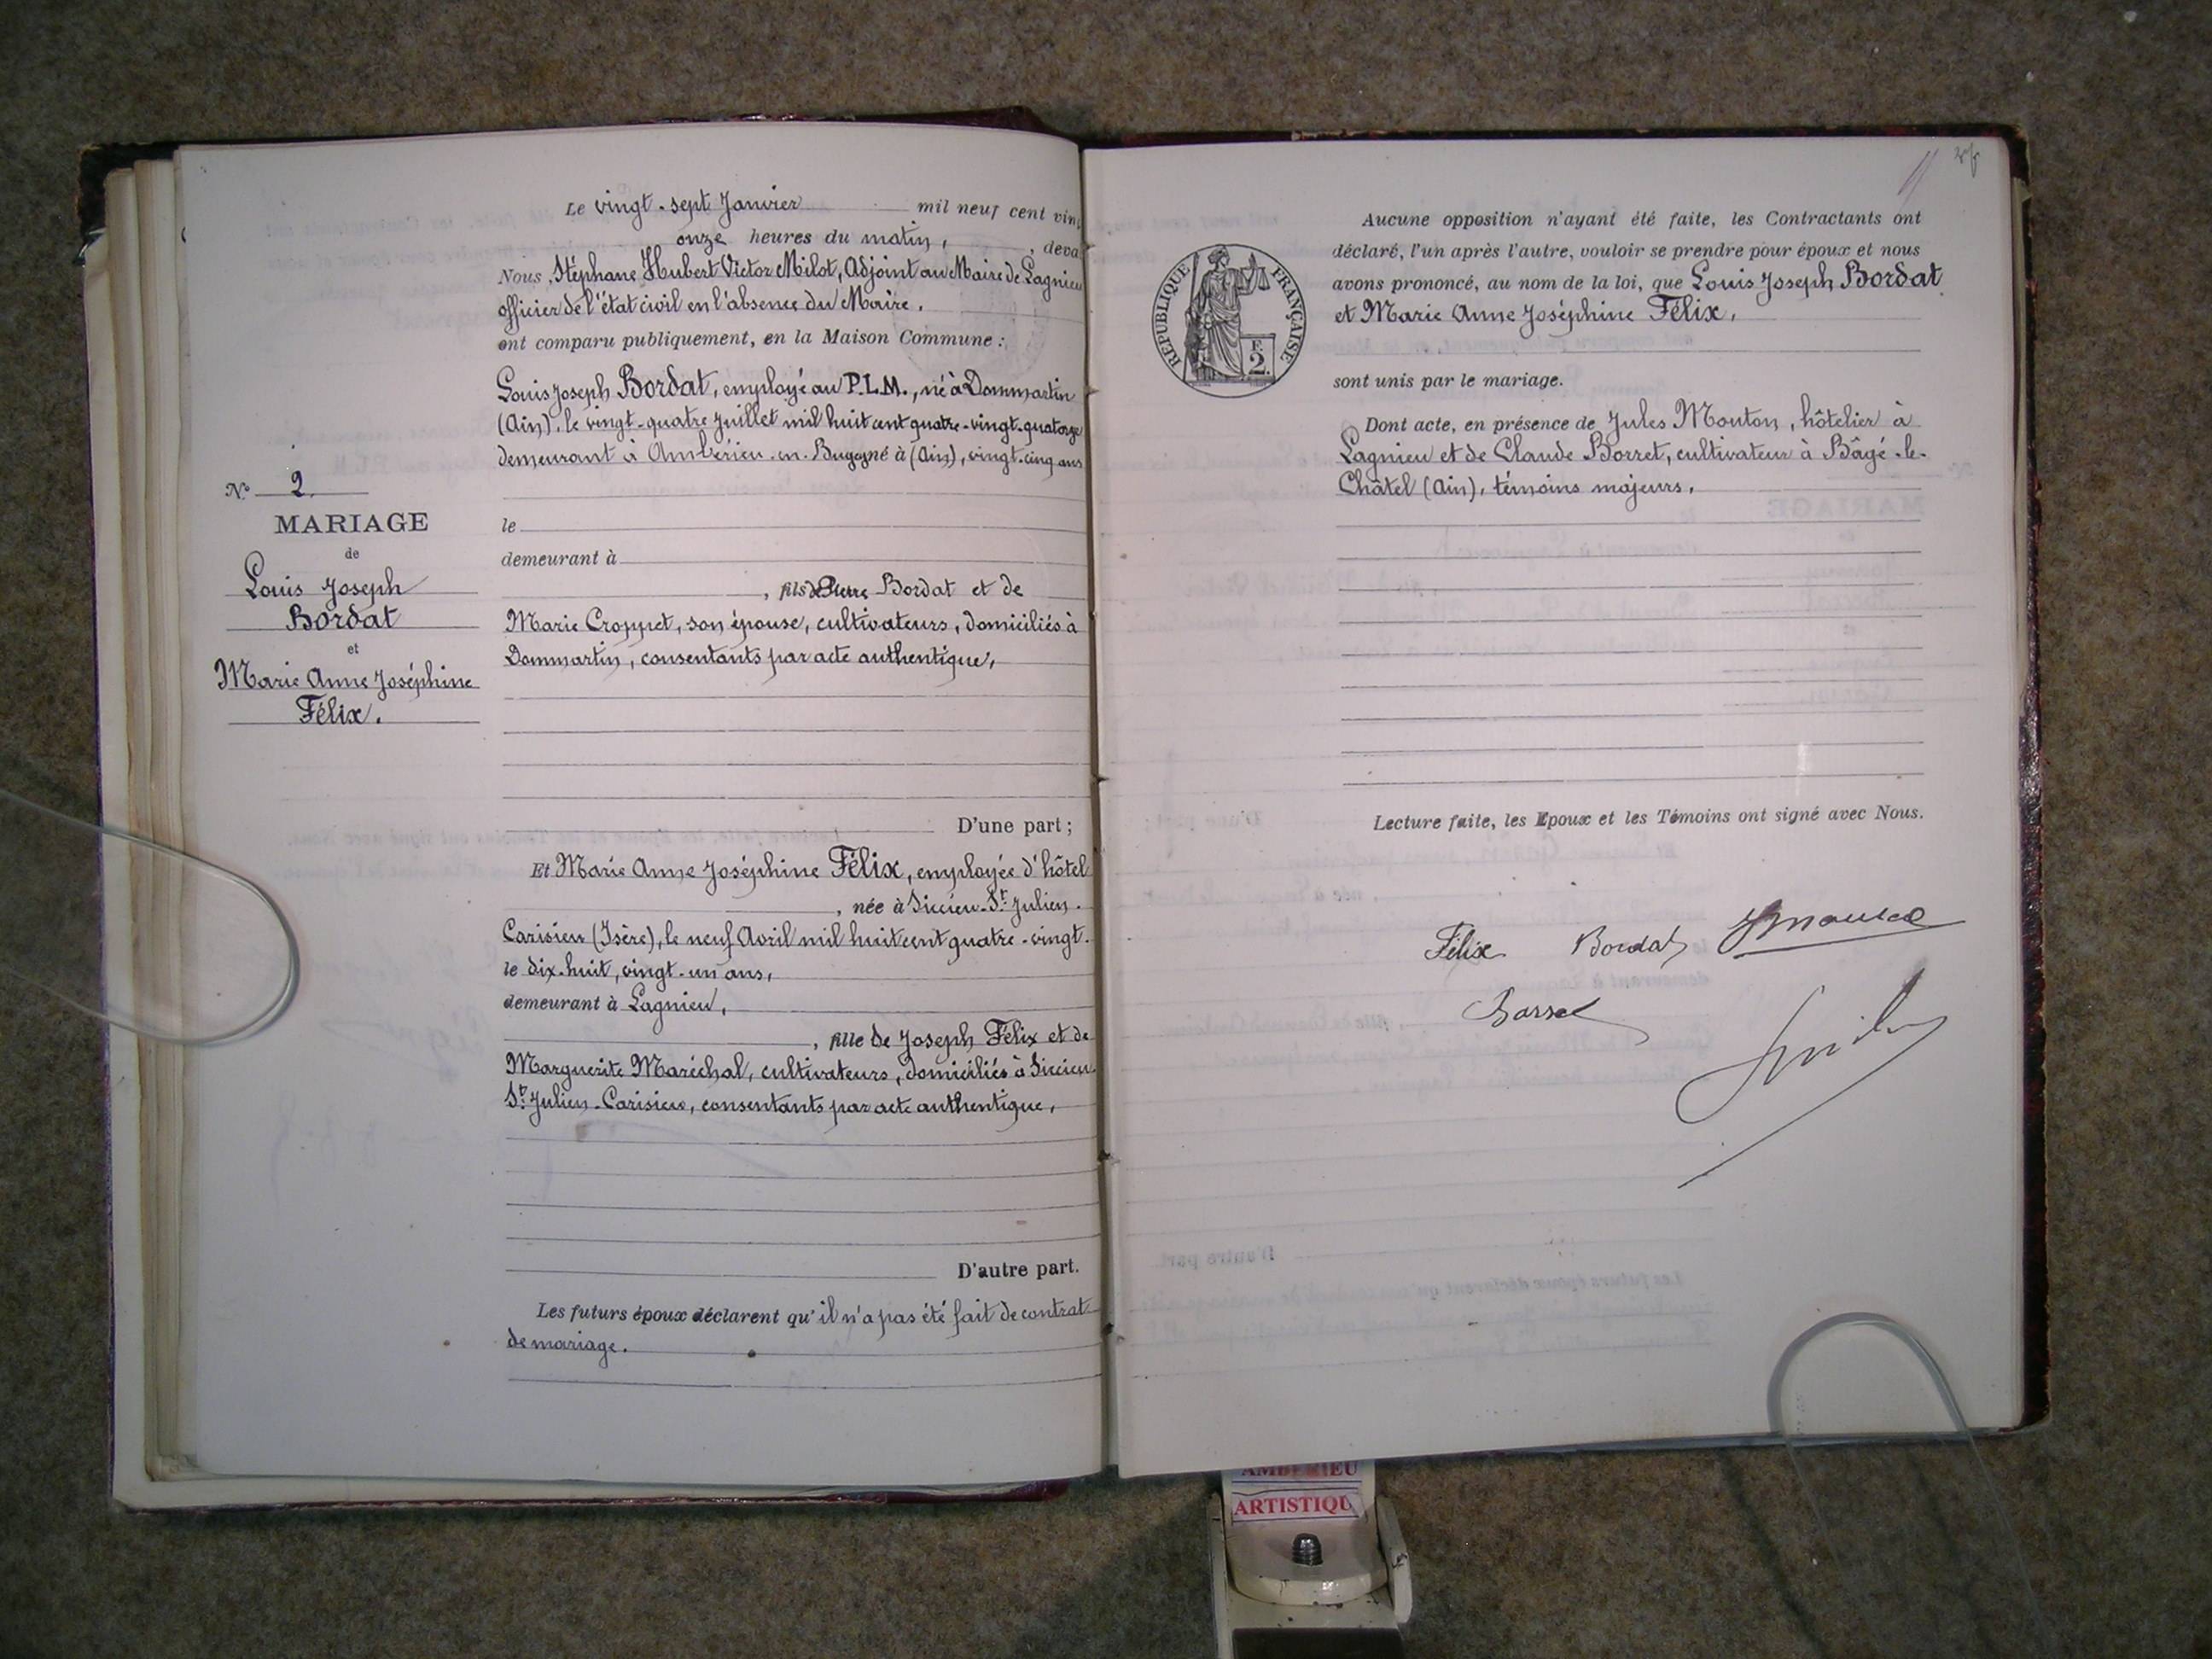 Le vingt-sept Janvier mil neuf cent vin
onze heures du matin, , deva
Nous, Stéphane Hubert Victor Milot, Adjoint au Maire de Lagnieu
officier de l'état civil en l'absence du Maire,
ont comparu publiquement, en la Maison Commune :
Louis Joseph Bordat, employé au P.L.M., né à Dommartin
(Ain), le vingt-quatre Juillet mil huit cent quatre-vingt-quatorze
demeurant à Ambérieu-en-Bugey né à (Ain), vingt-cinq ans
le
demeurant à
, fils de Pierre Bordat et de
Marie Croppet, son épouse, cultivateurs, domiciliés à
Dommartin, consentants par acte authentique,
D'une part ;
Et Marie Anne Joséphine Félix, employée d'hôtel
, née à Siccieu-St Julien-
Carisieu (Isère), le neuf Avril mil huit cent quatre-vingt-
le dix-huit, vingt-un ans,
demeurant à Lagnieu,
, fille de Joseph Félix et de
Marguerite Maréchal, cultivateurs, domiciliés à Siccieu-
St Julien-Carisieu, consentants par acte authentique,
D'autre part.
Les futurs époux déclarent qu'il n'a pas été fait de contrat
de mariage.
No 2
MARIAGE
de
Louis Joseph
Bordat
et
Marie Anne Joséphine
Félix.
RÉPUBLIQUE FRANÇAISE
F.
2.
Aucune opposition n'ayant été faite, les Contractants ont
déclaré, l'un après l'autre, vouloir se prendre pour époux et nous
avons prononcé, au nom de la loi, que Louis Joseph Bordat
et Marie Anne Joséphine Félix,
sont unis par le mariage.
Dont acte, en présence de Jules Mouton, hôtelier à
Lagnieu et de Claude Borret, cultivateur à Bâgé-le-
Châtel (Ain), témoins majeurs,
Lecture faite, les Epoux et les Témoins ont signé avec Nous.
Félix Bordat
AMBERIEU
ARTISTIQU